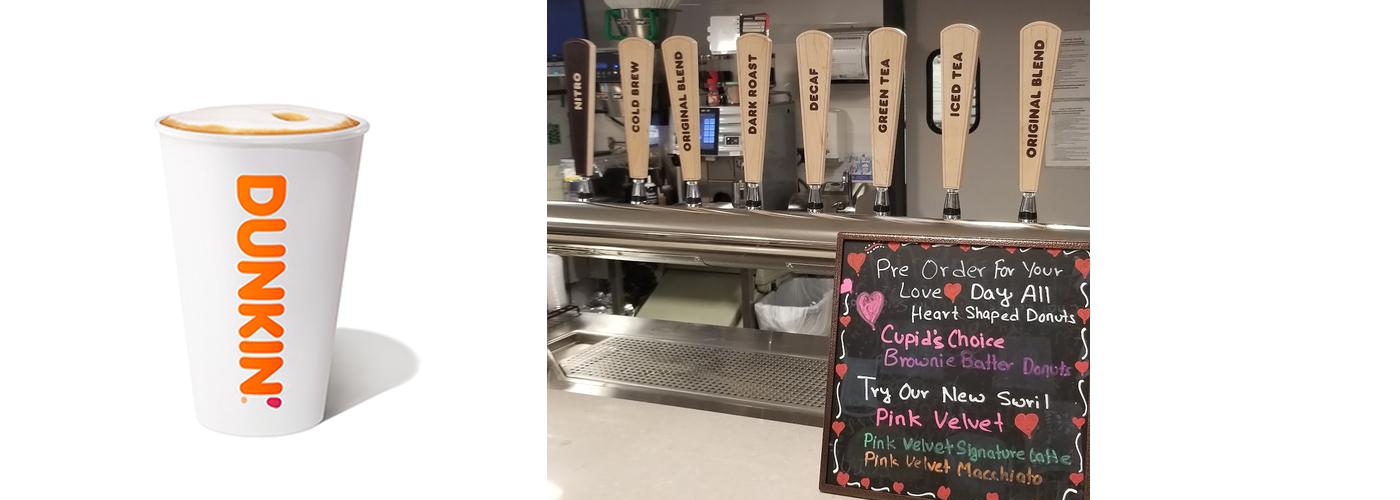 DUNKIN'
NITRO
COLD BREW
ORIGINAL BLEND
DARK ROAST
DECAF
GREEN TEA
ICED TEA
ORIGINAL BLEND
Pre Order For Your
Love Day, All
Heart Shaped Donuts
Cupid's Choice
Brownie Batter Donuts
Try Our New Swril
Pink Velvet
Pink Velvet Signature Latte
Pink Velvet Macchiato